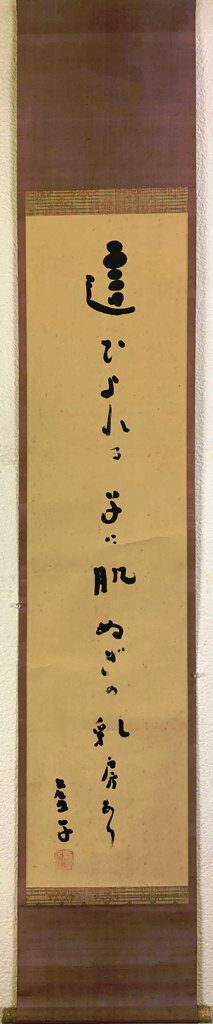 這ひよれる子に肌ぬぎの乳房あり
虚子